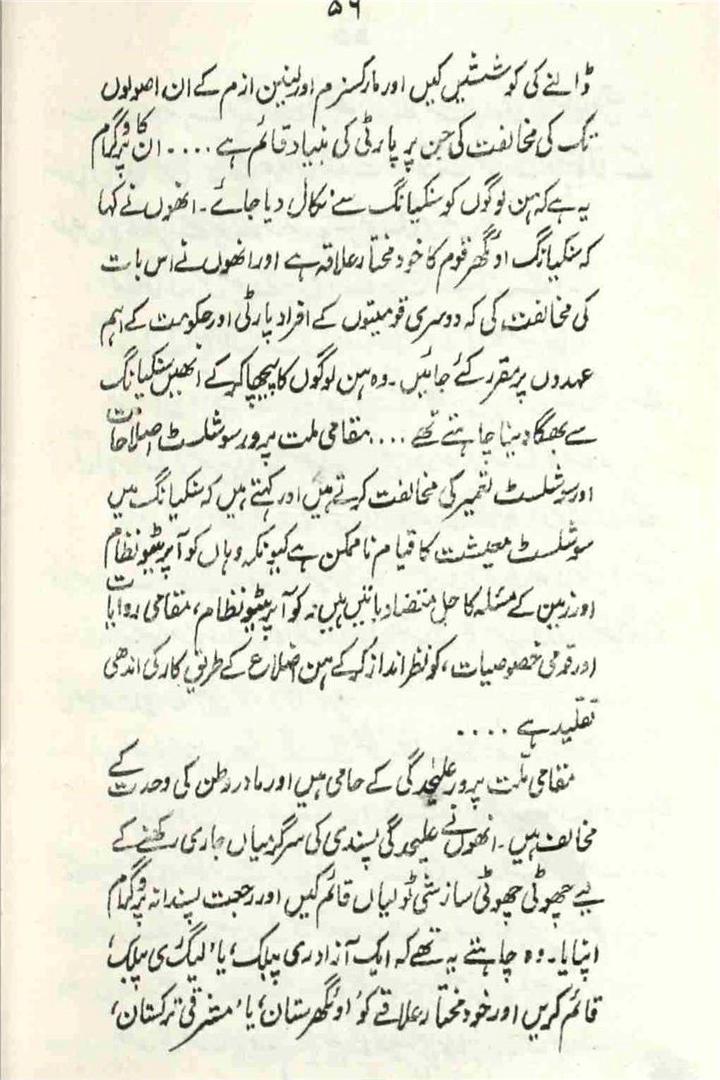 ۵۶
ڈالنے کی کوششیں کیں اور مارکسزم اور لینین ازم کے ان اصولوں
تک کی مخالفت کی جن پر پارٹی کی بنیاد قائم ہے .... ان کا پروگرام
یہ ہے کہ ہن لوگوں کو سنکیانگ سے نکال دیا جائے ۔ انھوں نے کہا
کہ سنکیانگ اوئگھر قوم کا خود مختار علاقہ ہے اور انھوں نے اس بات
کی مخالفت کی کہ دوسری قومیتوں کے افراد پارٹی اور حکومت کے اہم
عہدوں پر مقرر کئے جائیں ۔ وہ ہن لوگوں کا پیچھا کر کے انھیں سنکیانگ
سے بھگا دینا چاہتے تھے .... مقامی ملت پرور سوشلسٹ اصلاحات
اور سوشلسٹ تعمیر کی مخالفت کرتے ہیں اور کہتے ہیں کہ سنکیانگ میں
سوشلسٹ معیشت کا قیام ناممکن ہے کیونکہ وہاں کوآپریٹیو نظام
اور زمین کے مسئلہ کا حل متضاد باتیں ہیں نہ کوآپریٹیو نظام، مقامی روایات
اور قدمی خصوصیات، کو نظر انداز کر کے ہن اضلاع کے طریق کار کی اندھی
تقلید ہے ....
مقامی ملّت پرور علیحدگی کے حامی ہیں اور مادر وطن کی وحدت کے
مخالف ہیں ۔ انھوں نے علیحدگی پسندی کی سرگرمیاں جاری رکھنے کے
لیے چھوٹی چھوٹی سازشی ٹولیاں قائم کیں اور رجعت پسندانہ پروگرام
اپنایا ۔ وہ چاہتے یہ تھے کہ ایک آزاد ری پبلک، یا 'لیگ ری پبلک'
قائم کریں اور خود مختار علاقے کو 'اوئگھرستان' یا 'مشرقی ترکستان'